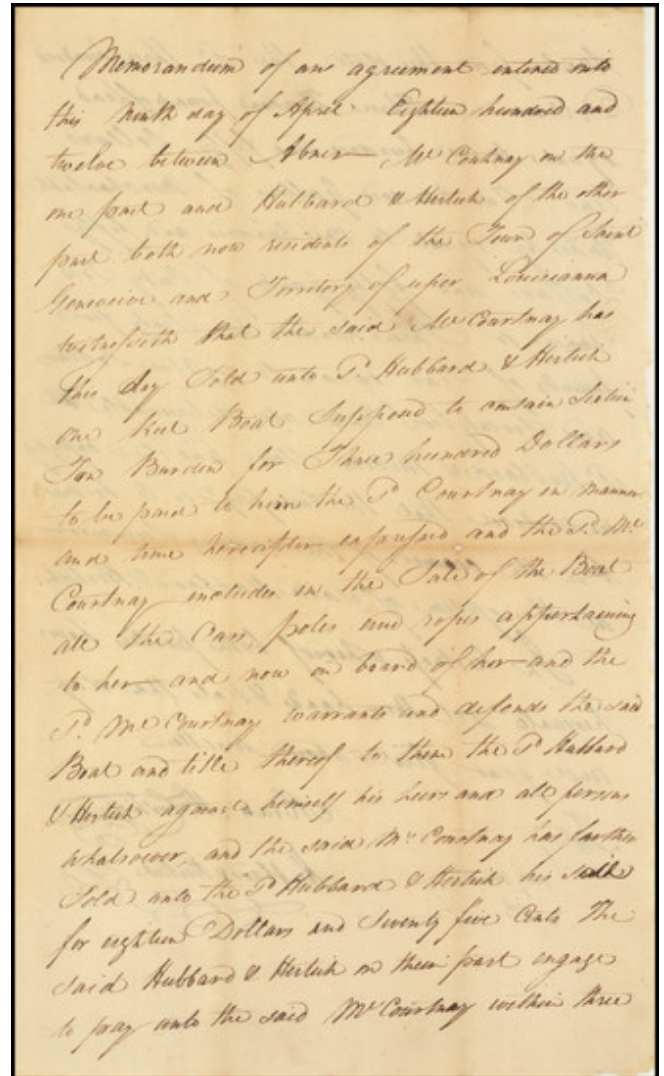 Memorandum of an agreement entered into
this Ninth day of April Eighteen hundred and
twelve between Abner Mc Courtnay on the
one part and Hubbard & Hertich of the other
part both now residents of the Town of Saint
Genevieve and Territory of uper Louiseanna
witnesseth that the said Mc Courtnay has
this day Sold unto Sd Hubbard & Hertich
one Keel Boat Supposed to contain Sixteen
Ton Burden for Three hundred Dollars
to be paid to him the Sd Courtnay in manner
and time hereafter expressed and the Sd Mc
Courtnay includes in the Sale of the Boat
all the Oars poles and ropes appertaining
to her and now on board of her and the
Sd Mc Courtnay warrants and defends the said
Boat and title thereof to them the Sd Hubbard
& Hertich against himself his heirs and all persons
whatsoever, and the said Mc Courtnay has further
Sold unto the Sd Hubbard & Hertich his
for eighteen Dollars and Seventy five Cents The
said Hubbard & Hertich on their part engage
to pay unto the said Mc Courtnay within three